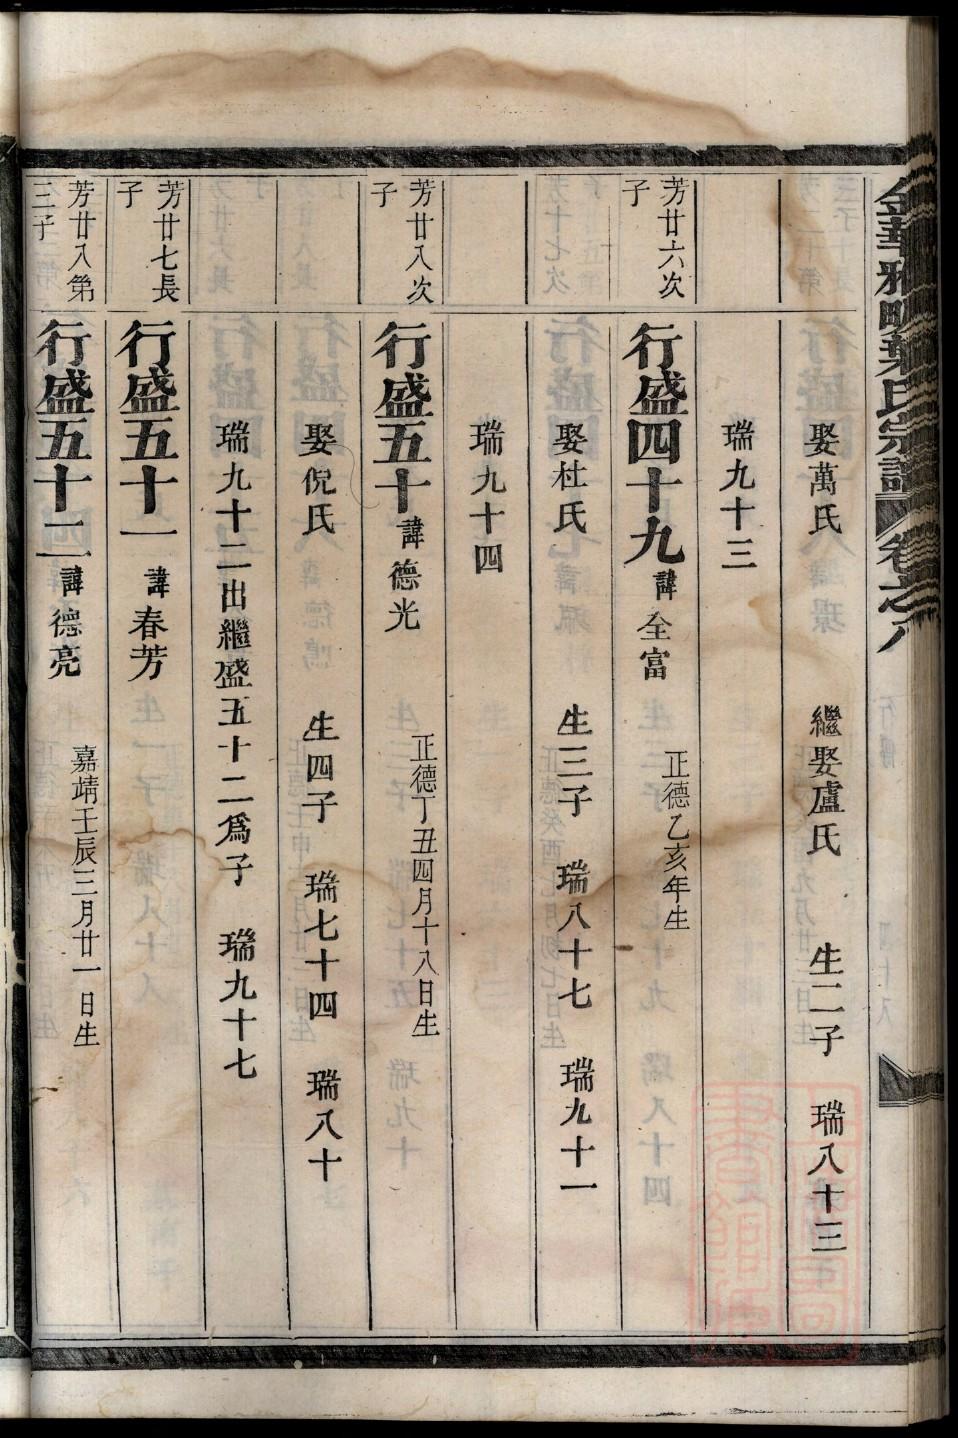 娶萬氏 繼娶盧氏 生二子 瑞八十三
瑞九十三
芳廿六次子
行盛四十九 諱全富 正德乙亥年生
娶杜氏 生三子 瑞八十七 瑞九十一
瑞九十四
芳廿八次子
行盛五十 諱德光 正德丁丑四月十八日生
娶倪氏 生四子 瑞七十四 瑞八十
瑞九十二出繼盛五十二爲子 瑞九十七
芳廿七長子
行盛五十一 諱春芳
芳廿八第三子
行盛五十二 諱德亮 嘉靖壬辰三月廿一日生